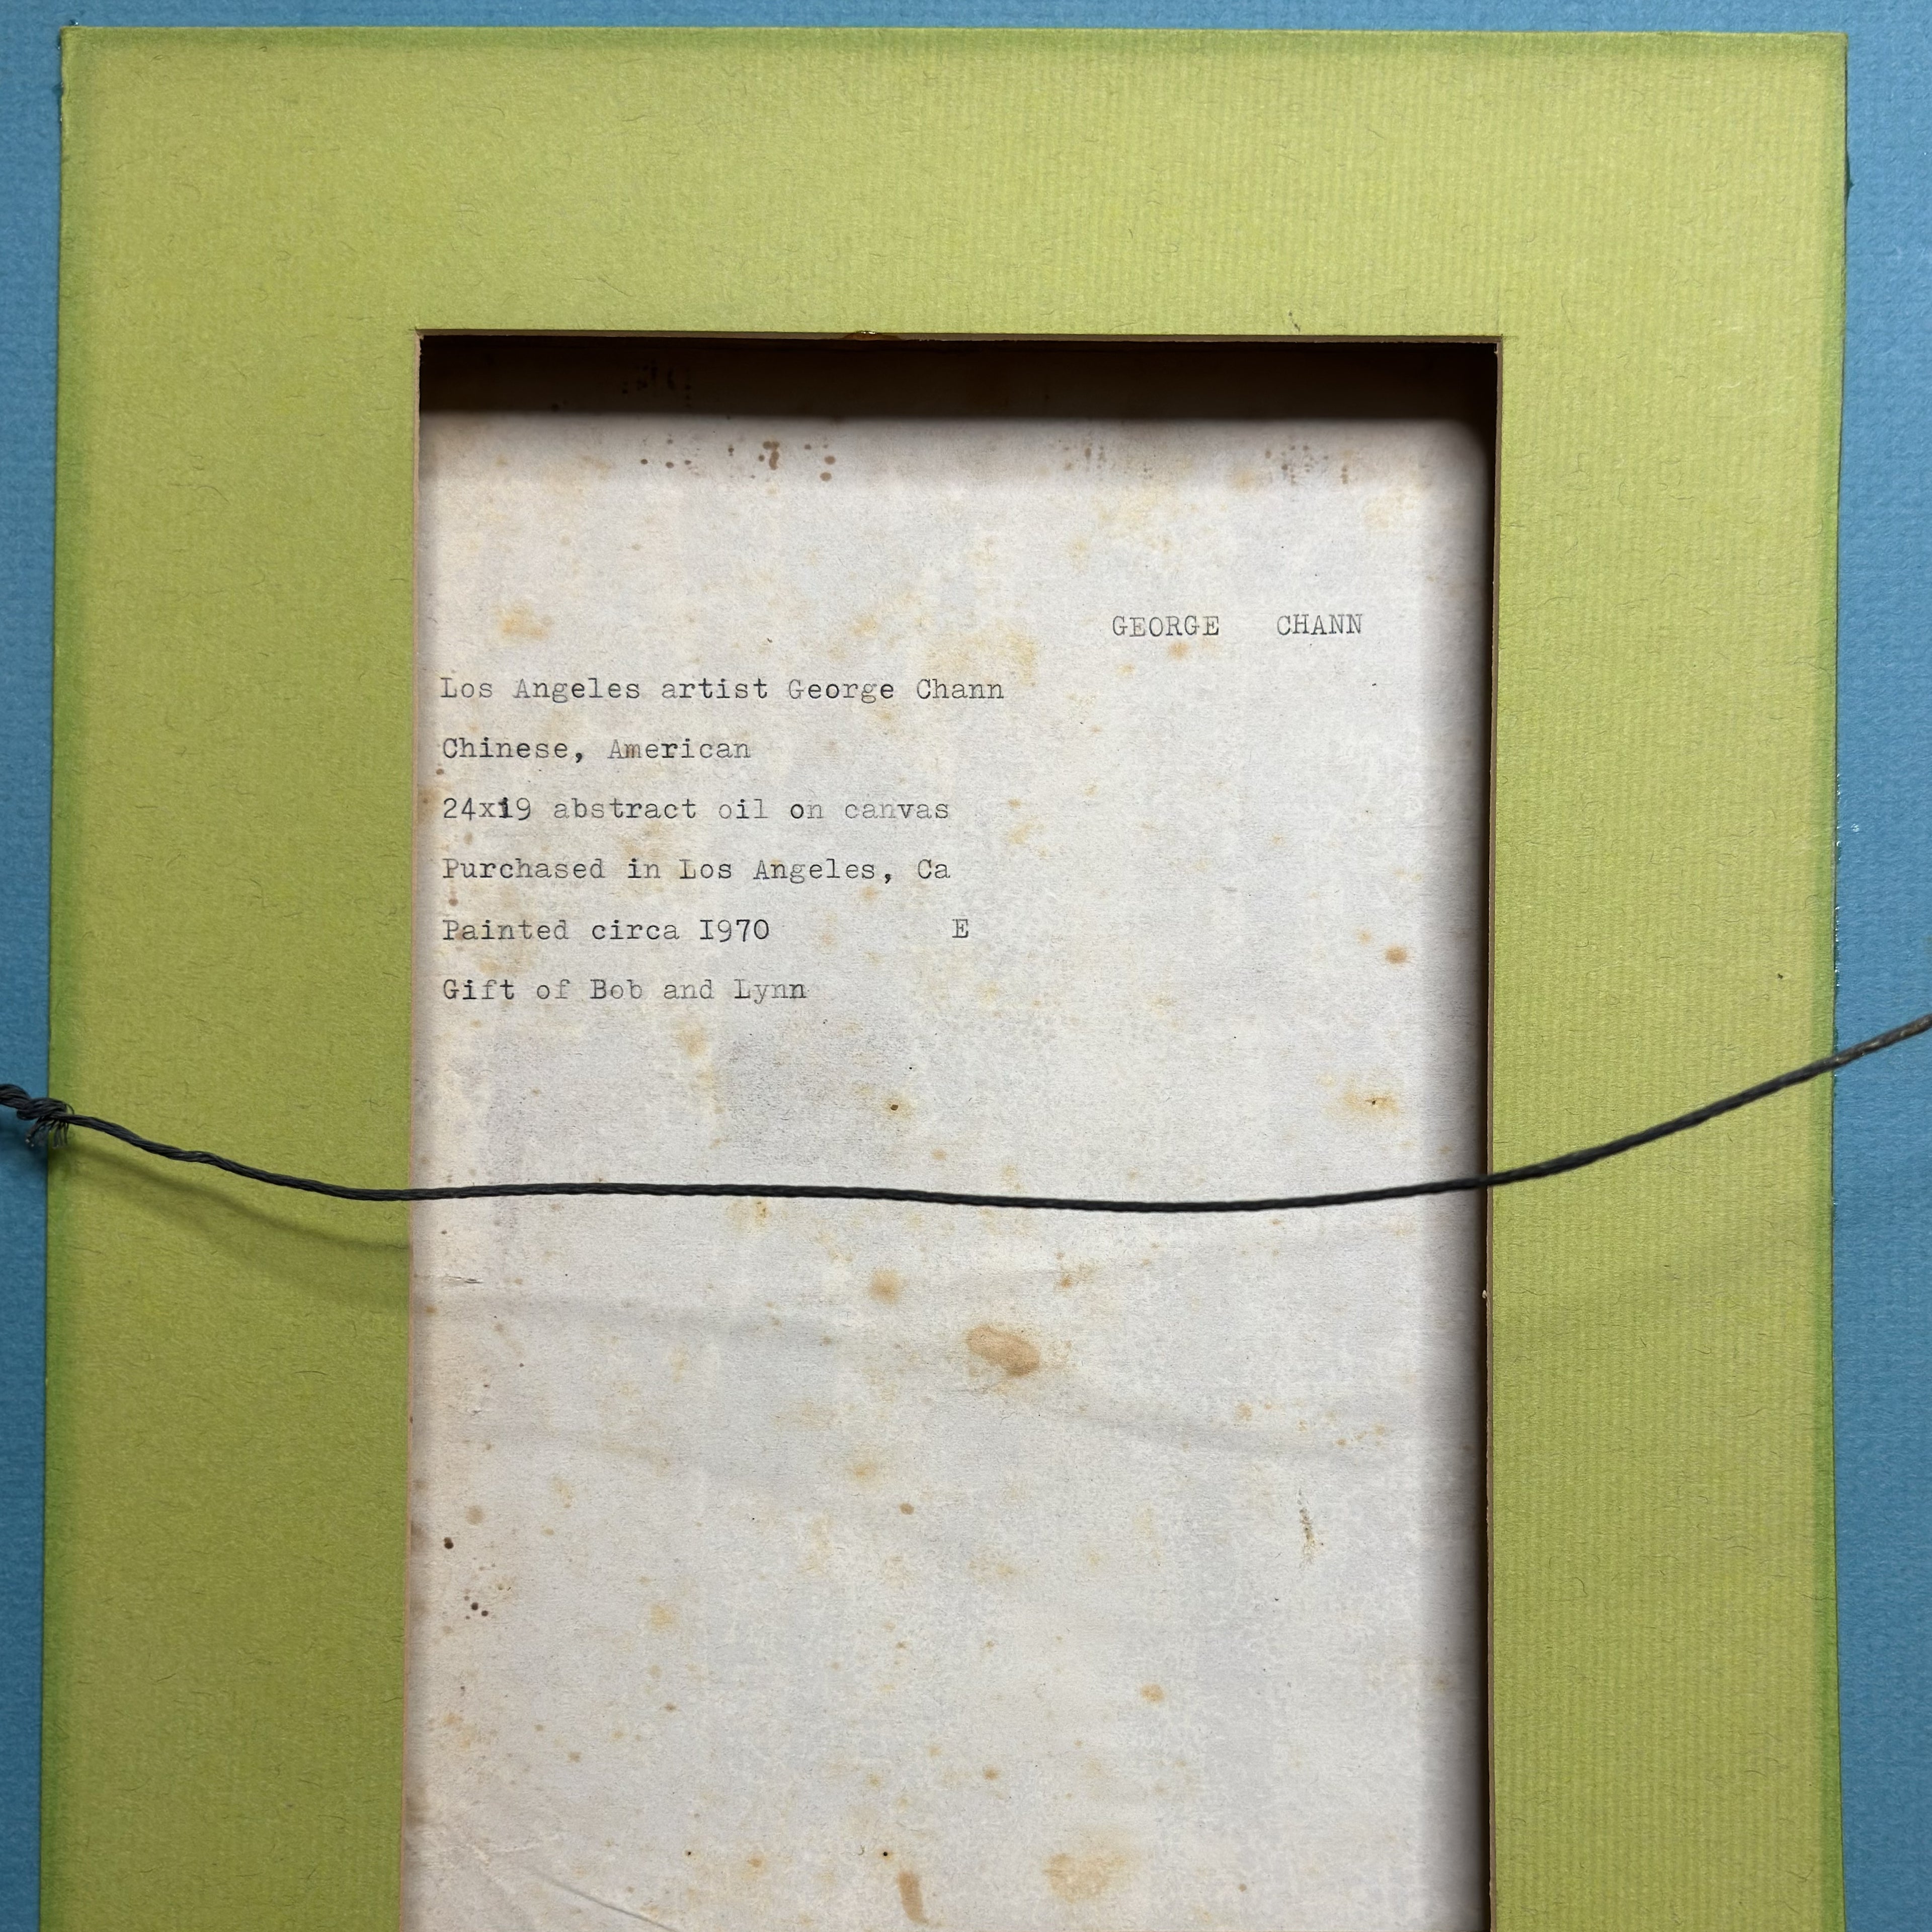 GEORGE CHANN
Los Angeles artist George Chann
Chinese, American
24x19 abstract oil on canvas
Purchased in Los Angeles, Ca
Painted circa I970 E
Gift of Bob and Lynn